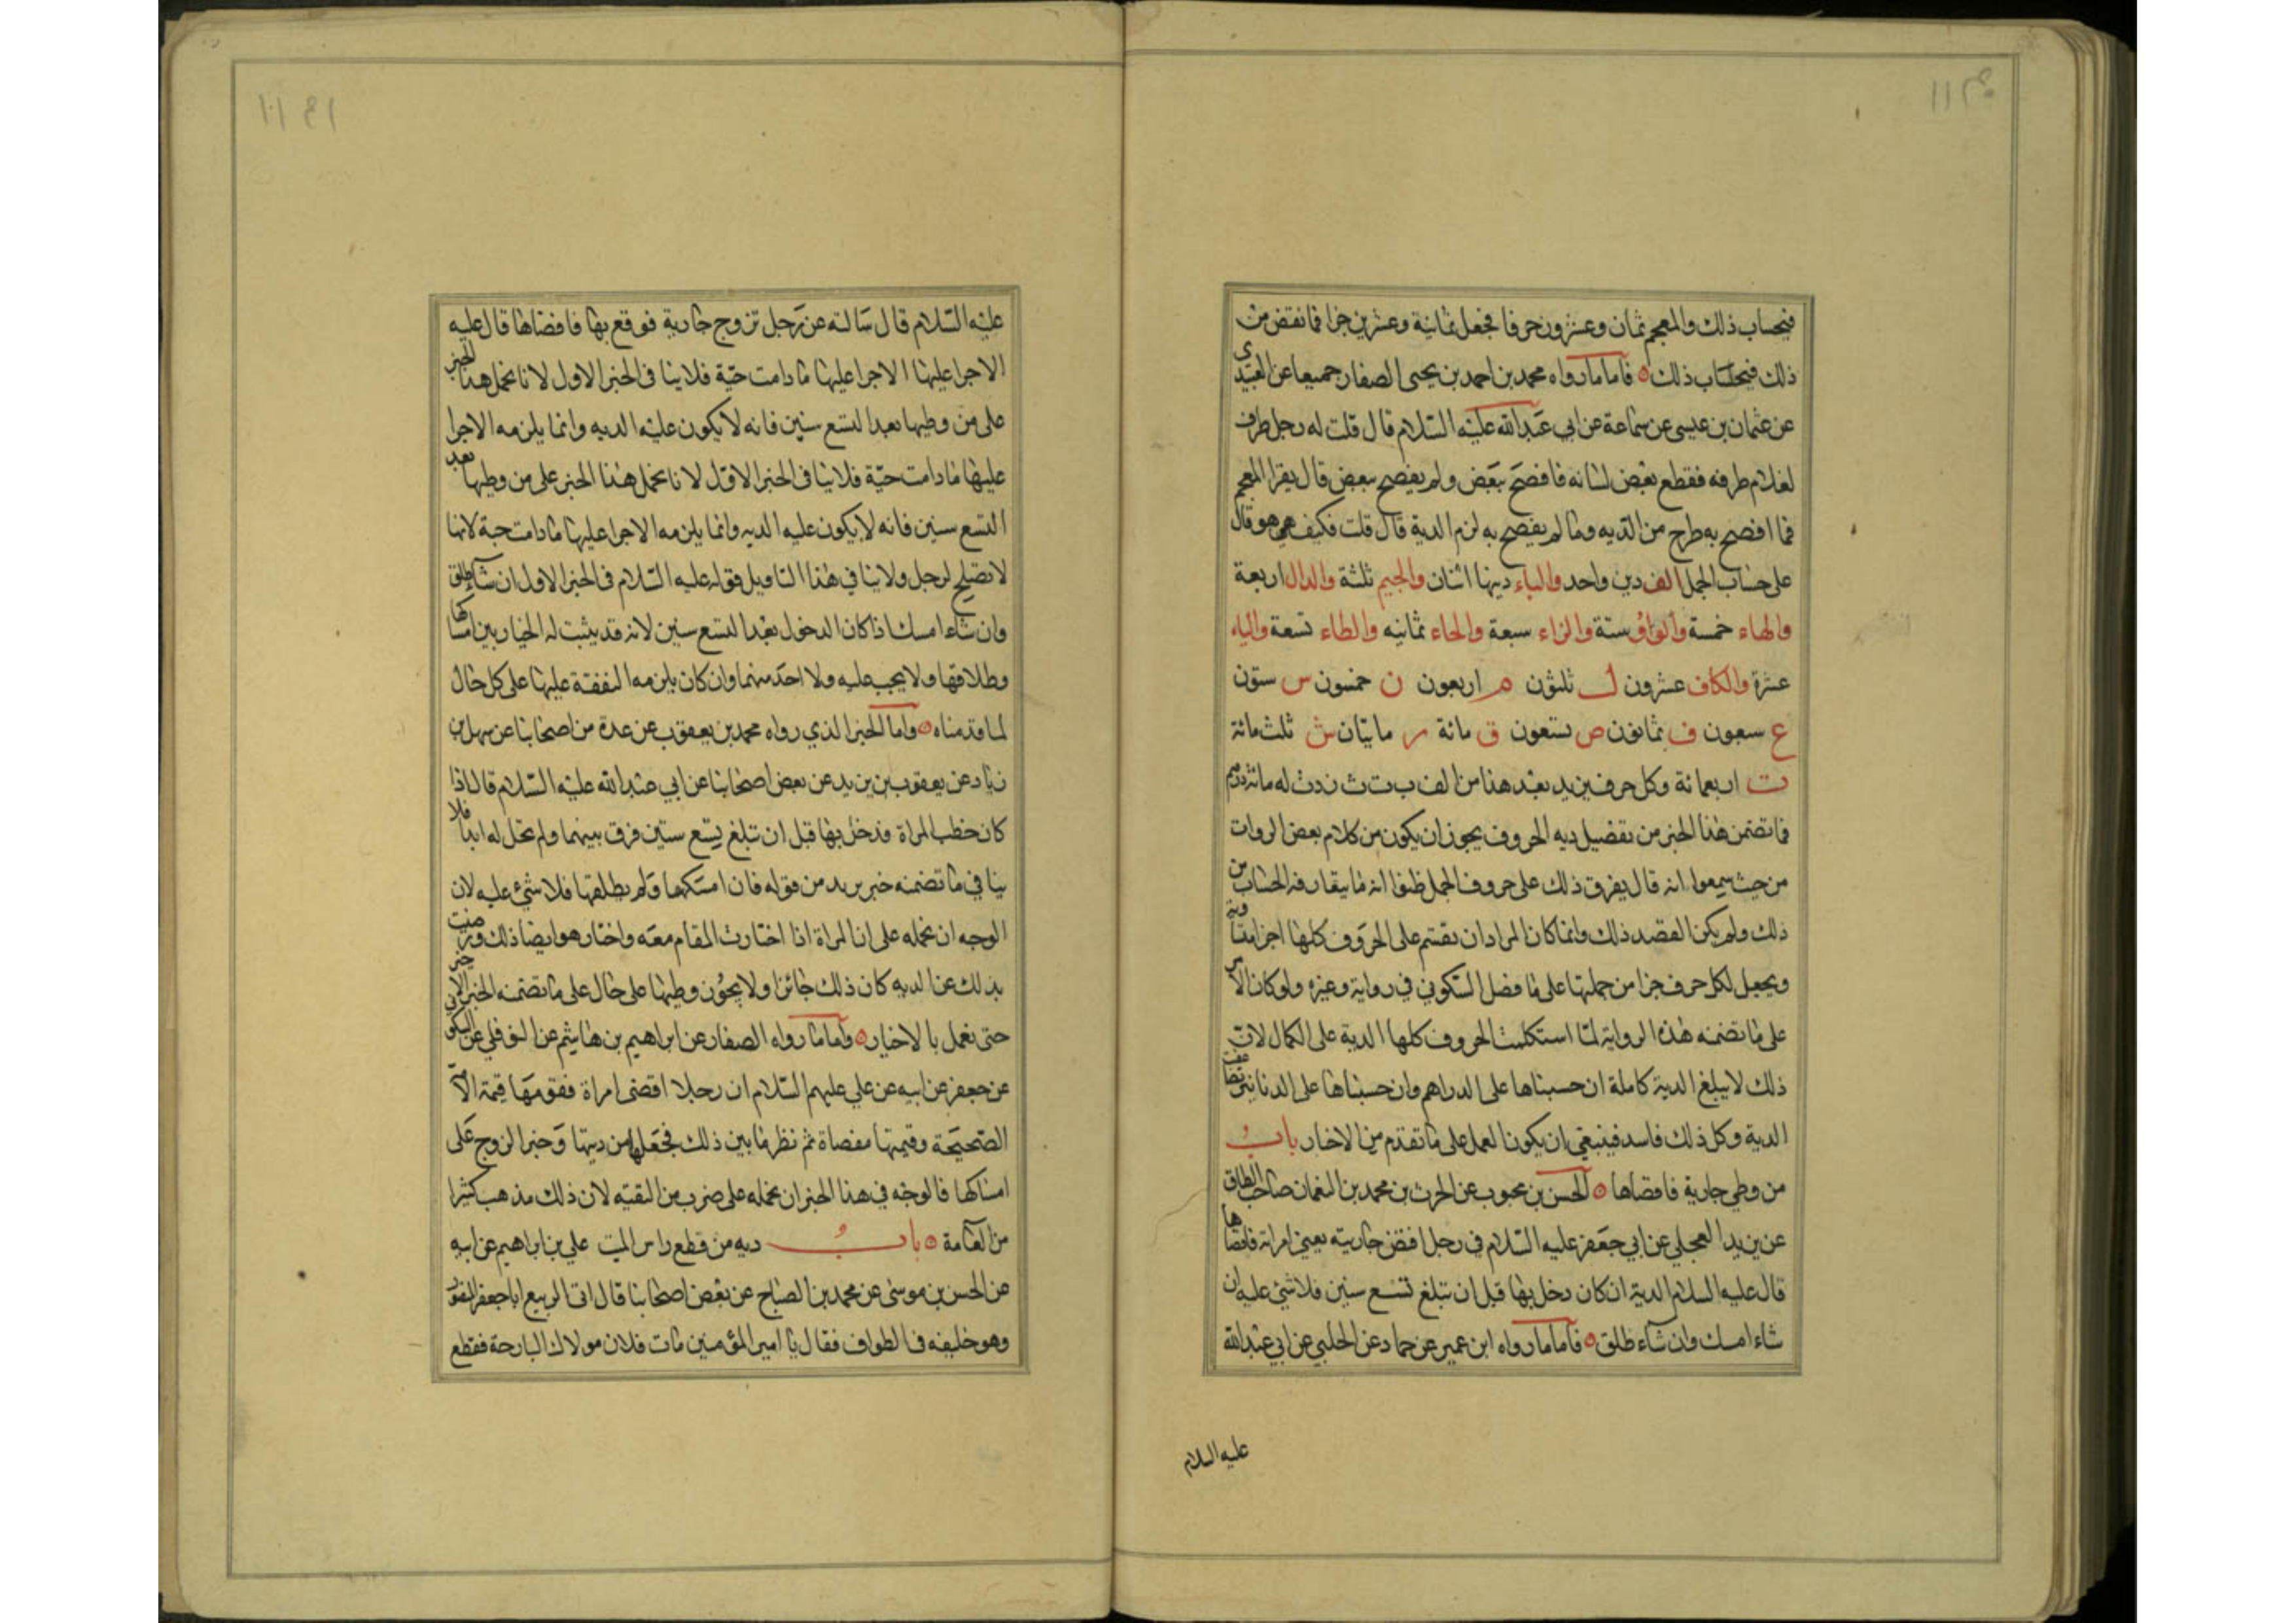 فبحساب ذلك والمعجم ثمان وعشرون حرفا فجعل ثمانية وعشرين جزا فما نقص من
ذلك فبحساب ذلك فاما ما رواه محمد بن احمد بن يحيى الصفار جميعا عن العبيدي
عن عثمان بن عيسى عن سماعة عن ابي عبد الله عليه السلام قال قلت له رجل طرف
لغلام طرفه فقطع بعض لسانه فافصح ببعض ولم يفصح ببعض قال يقرا المعجم
فما افصح به طرح من الديه وما لم يفصح به لزم الدية قال قلت فكيف هو قال
على حساب الجمل الف دين واحد والباء دينها اثنان والجيم ثلثة والدال اربعة
والهاء خمسة والواو ستة والزاء سبعة والحاء ثمانيه والطاء تسعة والياء
عشرة والكاف عشرون ل ثلثون م اربعون ن خمسون س ستون
ع سبعون ف ثمانون ص تسعون ق مائة ر ماتيان ش ثلث مائة
ت اربعمائة وكل حرف يزيد بعد هذا من الف ب ت ث زدت له مائة درهم
فما تضمن هذا الخبر من تفصيل ديه الحروف يجوز ان يكون من كلام بعض الروات
من حيث سمعوا انه قال يفرق ذلك على حروف الجمل ظنوا انه ما يتعارفه الحساب من
ذلك ولم يكن القصد ذلك وانما كان المراد ان يقسم على الحروف كلها اجزا متساوية
ويجعل لكل حرف جزا من جملتها على ما فصل السكوني في رواية وغيره ولو كان الامر
على ما تضمنه هذه الرواية لما استكملت الحروف كلها الدية على الكمال لان
ذلك لا يبلغ الدية كاملة ان حسبناها على الدراهم وان حسبناها على الدنانير تضاعفت
الدية وكل ذلك فاسد فينبغي ان يكون العمل على ما تقدم من الاخبار باب
من وطي جارية فافضاها الحسن بن محبوب عن الحرث بن محمد بن النعمان صاحب الطاق
عن يزيد العجلي عن ابي جعفر عليه السلام في رجل افتض جاريته يعني امراته فافضاها
قال عليه السلام الدية ان كان دخل بها قبل ان تبلغ تسع سنين فلا شئ عليه ان
شاء امسك وان شاء طلق فاما ما رواه ابن عمير عن حماد عن الحلبي عن ابي عبد الله
عليه السلام
عليه السلام قال سالته عن رجل تزوج جارية فوقع بها فافضاها قال عليه
الاجرا عليها الاجرا عليها ما دامت حية فلا ينافى الخبر الاول لانا نحمل هذا الخبر
على من وطيها بعد التسع سنين فانه لا يكون عليه الديه وانما يلزمه الاجرا
عليها ما دامت حية فلا ينافى الخبر الاول لانا نحمل هذا الخبر على من وطيها بعد
التسع سنين فانه لا يكون عليه الديه وانما يلزمه الاجرا عليها ما دامت حية لانها
لا تصلح لرجل ولا ينافي هذا التاويل قوله عليه السلام فى الخبر الاول ان شاء طلق
وان شاء امسك اذا كان الدخول بعد التسع سنين لانه قد يثبت له الخيار بين امساكها
وطلاقها ولا يجب عليه ولا احد منهما وان كان يلزمه النفقة عليها على كل حال
لما قدمناه واما الخبر الذي رواه محمد بن يعقوب عن عدة من اصحابنا عن سهل بن
زياد عن يعقوب بن يزيد عن بعض اصحابنا عن ابي عبد الله عليه السلام قال اذا
كان خطب المراة فدخل بها قبل ان تبلغ تسع ستين فرق بينهما ولم تحل له ابدا فلا
ينافي ما تضمنه خبر بريد من قوله فان امسكها ولم يطلقها فلا شئ عليه لان
الوجه ان نحمله على ان المراة اذا اختارت المقام معه واختار هو ايضا ذلك ورضيت
بذلك عن الديه كان ذلك جائزا ولا يجوز وطيها على حال على ما تضمنه الخبر الاخير
حتى نعمل بالاخبار واما ما رواه الصفار عن ابراهيم بن هاشم عن النوفلي عن السكوني
عن جعفر عن ابيه عن علي عليهم السلام ان رجلا افضى امراة فقومها قيمة الامة
الصحيحة وقيمتها مفضاة ثم نظر ما بين ذلك فجعلها من ديتها وخبر الزوج على
امساكها فالوجه في هذا الخبر ان نحمله على ضرب من التقيه لان ذلك مذهب كثيرا
من العامة باب ديه من قطع راس الميت علي بن ابراهيم عن ابيه
عن الحسن بن موسى عن محمد بن الصباح عن بعض اصحابنا قال اتى الربيع ابا جعفر المنصور
وهو خليفه فى الطواف فقال يا امير المؤمنين مات فلان مولاك البارحة فقطع